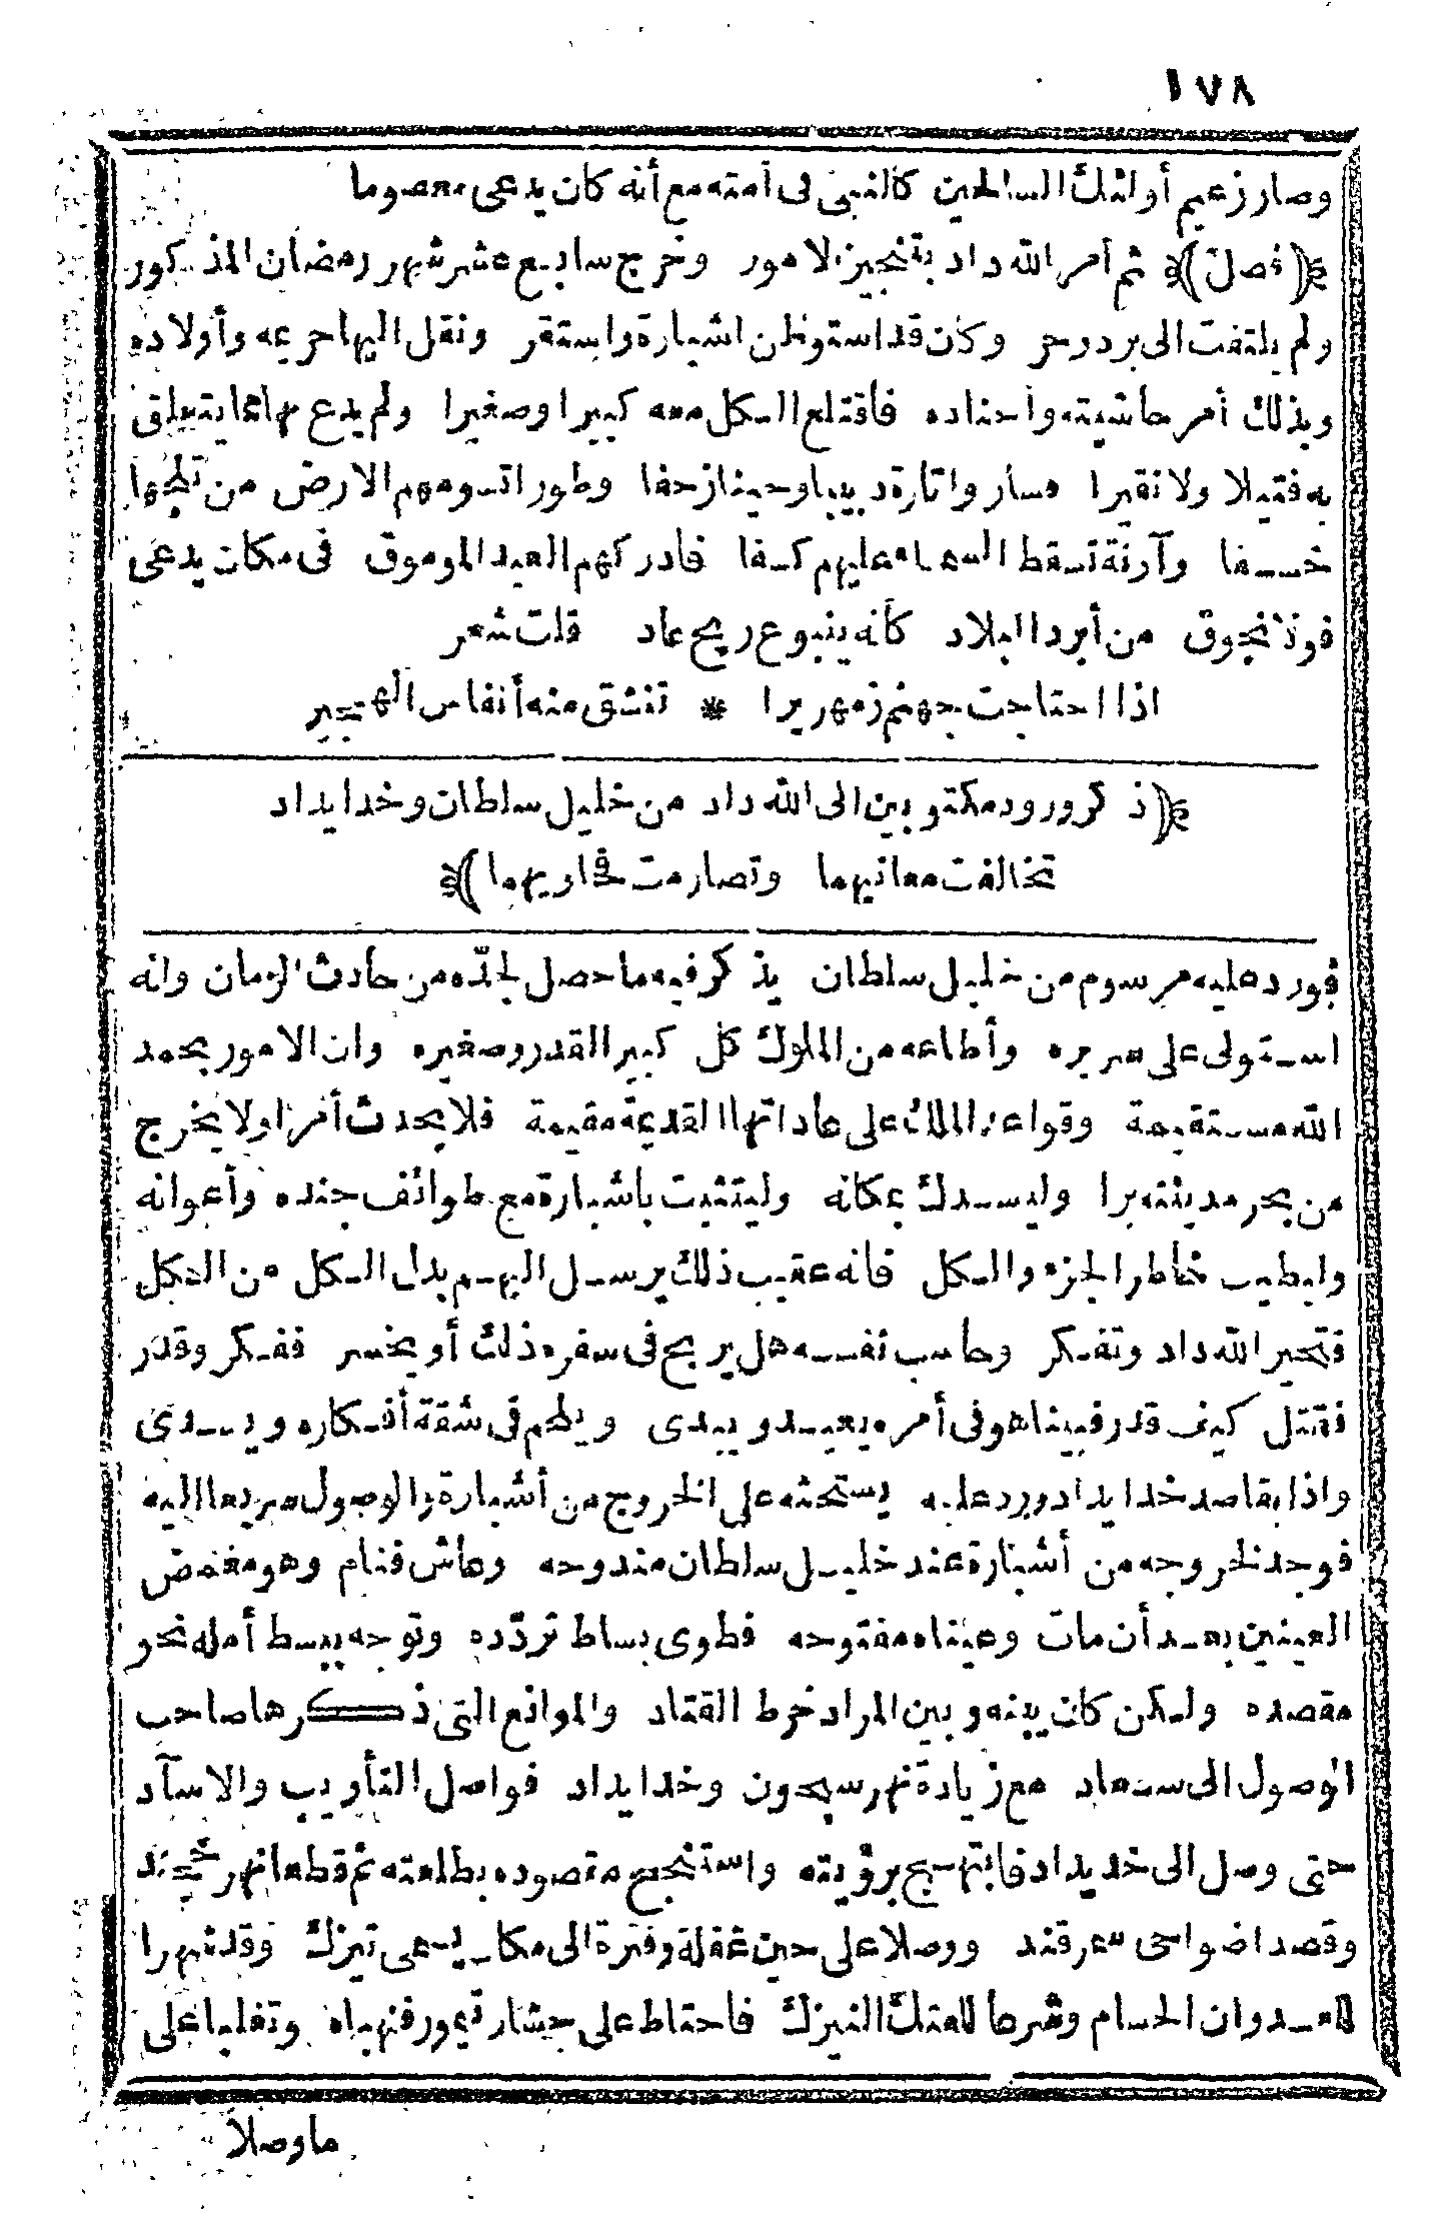 ١٧٨
وصار زعيم أولئك السالخين كالنبى فى أمته مع أنه كان يدعى معصوما
﴿فصل﴾ ثم أمر الله داد بتنجيز الامور وخرج سابع عشر شهر رمضان المذكور
ولم يلتفت الى برد وحر وكان قد استوطن اشبارة واستقر ونقل اليها حريمه وأولاده
وبذلك أمر حاشيته وأجناده فاقتلع الكل معه كبيرا وصغيرا ولم يدع مما يتعلق
به فتيلا ولا نقيرا فسار واتارة دبيبا وحينا زحفا وطورا تسومهم الارض من ثلجها
خسفا وآونة تسقط السماء عليهم كسفا فادركهم العيد الموموق فى مكان يدعى
قولانجوق من أبرد البلاد كأنه ينبوع ريح عاد قلت شعر
اذا احتاجت جهنم زمهريرا * تنشق منه أنفاس الهجير
﴿ذكر ورود مكتوبين الى الله داد من خليل سلطان وخدايداد
تخالفت معانيهما وتصارمت فحاويهما﴾
فورد عليه مرسوم من خليل سلطان يذكر فيه ما حصل لجده من حادث الزمان وانه
استولى على سريره وأطاعه من الملوك كل كبير القدر وصغيره وان الامور بحمد
الله مستقيمة وقواعد الملك على عاداتها القديمة مقيمة فلا يحدث أمرا ولا يخرج
من بحر مدينته برا وليسدك بمكانه وليتثبت باشبارة مع طوائف جنده وأعوانه
وليطيب خاطر الجزء والكل فانه عقيب ذلك يرسل اليهم بدل الكل من الكل
فتحير الله داد وتفكر وحاسب نفسه هل يربح فى سفره ذلك أو يخسر ففكر وقدر
فقتل كيف قدر فبينا هو فى أمره يعيد ويبدى ويلحم فى شقة أفكاره ويسدى
واذا بقاصد خدايداد ورد عليه يستحثه على الخروج من أشبارة والوصول سريعا اليه
فوجد لخروجه من أشبارة عند خليل سلطان مندوحه وعاش فنام وهو مغمض
العينين بعد أن مات وعيناه مفتوحه فطوى بساط تردّده وتوجه يبسط أمله نحو
مقصده ولكن كان بينه وبين المراد خرط القتاد والموانع التى ذكرها صاحب
الوصول الى سعاد مع زيادة نهر سيحون وخدايداد فواصل التأويب والاسآد
حتى وصل الى خديداد فابتهج برؤيته واستنجح مقصوده بطلعته ثم قطعا نهر خجند
وقصدا ضواحى سمرقند ووصلا على حين غفلة وفترة الى مكان يسمى تيزك وقد شهرا
للعدوان الحسام وشرعا للفتك النيزك فاحتاط على جشار تيمور فنهباه وتغلبا على
ما وصلا